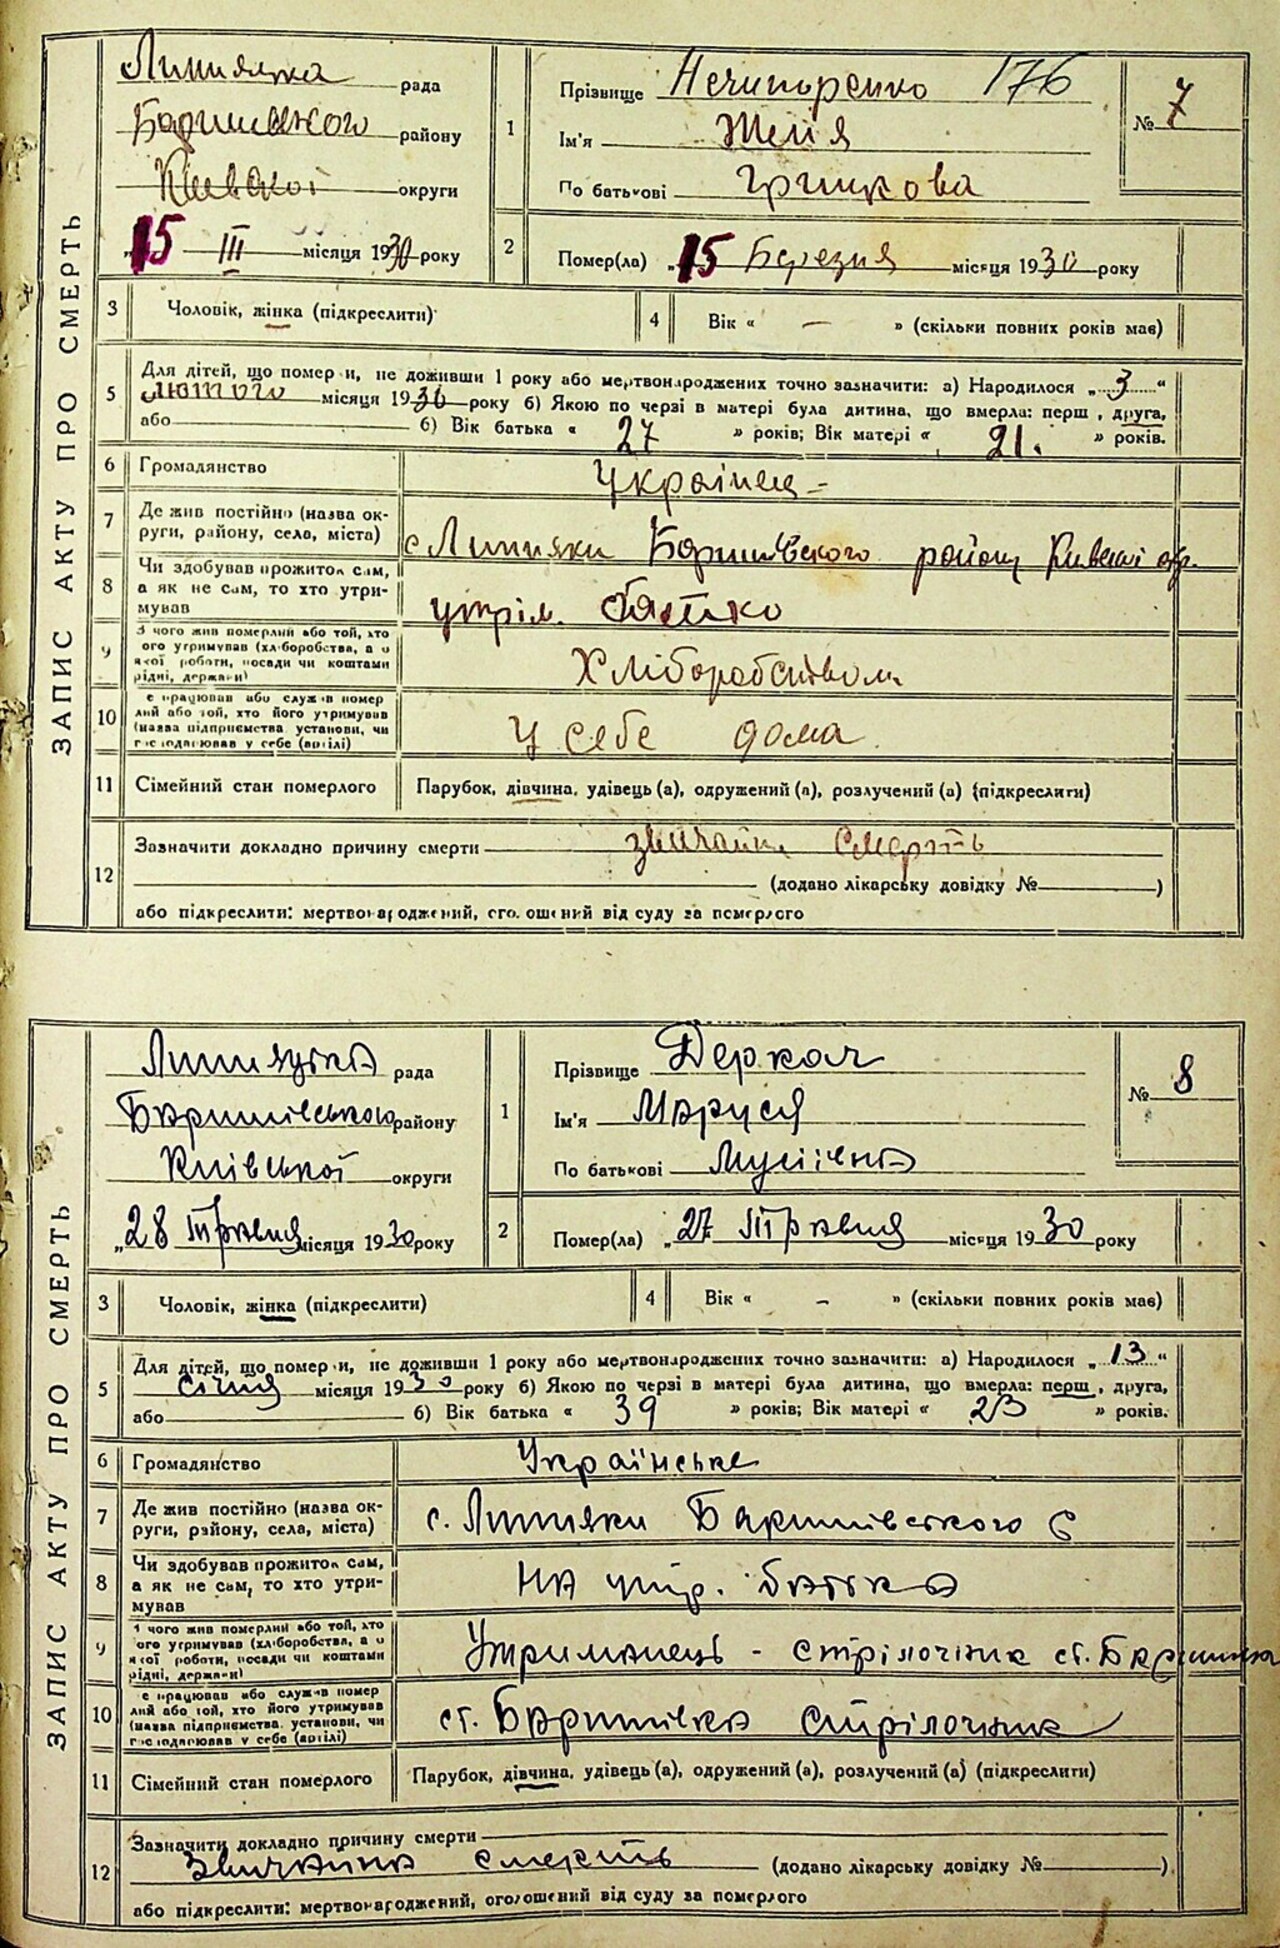 ЗАПИС АКТУ ПРО СМЕРТЬ
рада
району
округи
15 III місяця 1930 року
1
Прізвище Нечипоренко 176
Ім'я Женя
По батькові Грицкова
№ 7
2
Помер(ла) „15 Березня місяця 1930 року
3 Чоловік, жінка (підкреслити)
4 Вік « — » (скільки повних років мав)
5 Для дітей, що помер и, не доживши 1 року або мертвонароджених точно зазначити: а) Народилося „ 3 “
лютого місяця 1930 року б) Якою по черзі в матері була дитина, що вмерла: перш , друга,
або б) Вік батька « 27 » років; Вік матері « 21. » років.
6 Громадянство Українец -
7 Де жив постійно (назва ок-
руги, району, села, міста)
с Липняки району
8 Чи здобував прожиток сам,
а як не сам, то хто утри-
мував
утрім. батко
9 З чого жив померлий або той, хто
ого утримував (хл боробства, а о
якої роботи, посади чи коштами
рідні, держави)
Хліборобством
10 е працював або служ в помер
лий або той, хто його утримував
(назва підприємства установи, чи
г с подарював у себе (артілі)
У себе дома
11 Сімейний стан померлого Парубок, дівчина, удівець (а), одружений (а), розлучений (а) (підкреслити)
12 Зазначити докладно причину смерти смерть
(додано лікарську довідку № )
або підкреслити: мертвонароджений, ого ошений від суду за померлого
ЗАПИС АКТУ ПРО СМЕРТЬ
рада
Баришівського району
Київської округи
„28 Травня місяця 1930 року
1
Прізвище Деркач
Ім'я Маруся
По батькові Мусіївна
№ 8
2
Помер(ла) „27 Травня місяця 1930 року
3 Чоловік, жінка (підкреслити)
4 Вік « — » (скільки повних років мав)
5 Для дітей, що помер и, не доживши 1 року або мертвонароджених точно зазначити: а) Народилося „ 13 “
січня місяця 1930 року б) Якою по черзі в матері була дитина, що вмерла: перш , друга,
або б) Вік батька « 39 » років; Вік матері « 23 » років.
6 Громадянство Українське
7 Де жив постійно (назва ок-
руги, району, села, міста)
с. Липняки Баришівського
8 Чи здобував прожиток сам,
а як не сам, то хто утри-
мував
на утр. батька
9 З чого жив померлий або той, хто
ого утримував (хл боробства, а о
якої роботи, посади чи коштами
рідні, держави)
Утриманець - стрілочник ст. Баришівка
10 е працював або служ в помер
лий або той, хто його утримував
(назва підприємства, установи, чи
г с подарював у себе (артілі)
ст. Баришівка стрілочник
11 Сімейний стан померлого Парубок, дівчина, удівець (а), одружений (а), розлучений (а) (підкреслити)
12 Зазначити докладно причину смерти
Звичайна смерть (додано лікарську довідку № )
або підкреслити: мертвонароджений, оголошений від суду за померлого